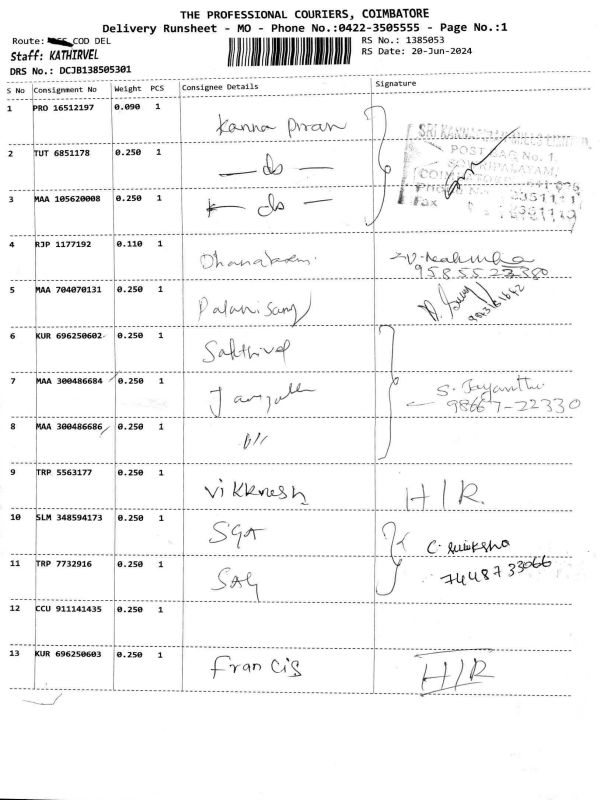 THE PROFESSIONAL COURIERS, COIMBATORE
Delivery Runsheet - MO - Phone No.:0422-3505555 - Page No.:1
Route: COD DEL
RS No.: 1385053
Staff: KATHIRVEL
RS Date: 20-Jun-2024
DRS No.: DCJB138505301
S No Consignment No Weight PCS Consignee Details Signature
1 PRO 16512197 0.090 1 Kanna Piran
2 TUT 6851178 0.250 1 — do —
POST BAG No. 1,
3 MAA 105620008 0.250 1 — do —
Fax
4 RJP 1177192 0.110 1
95855 22380
5 MAA 704070131 0.250 1 Palanisamy
6 KUR 696250602 0.250 1 Sakthivel
7 MAA 300486684 0.250 1 S. Jayanthi
98667-22330
8 MAA 300486686 0.250 1
9 TRP 5563177 0.250 1 Vikknesh H/R.
10 SLM 348594173 0.250 1 SGA
11 TRP 7732916 0.250 1 SAG
74487 33066
12 CCU 911141435 0.250 1
13 KUR 696250603 0.250 1 Francis H/R